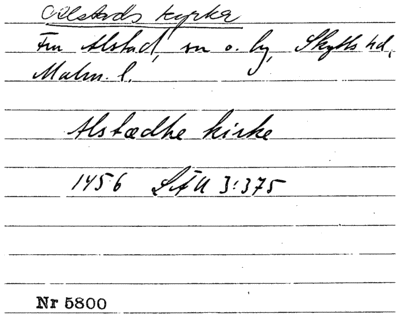 Alstads kyrka
Fru Alstad, sn o. by, Skytts hd,
Malm. l.
Alstædhe kirke
1456 SÄU 3:375
Nr 5800